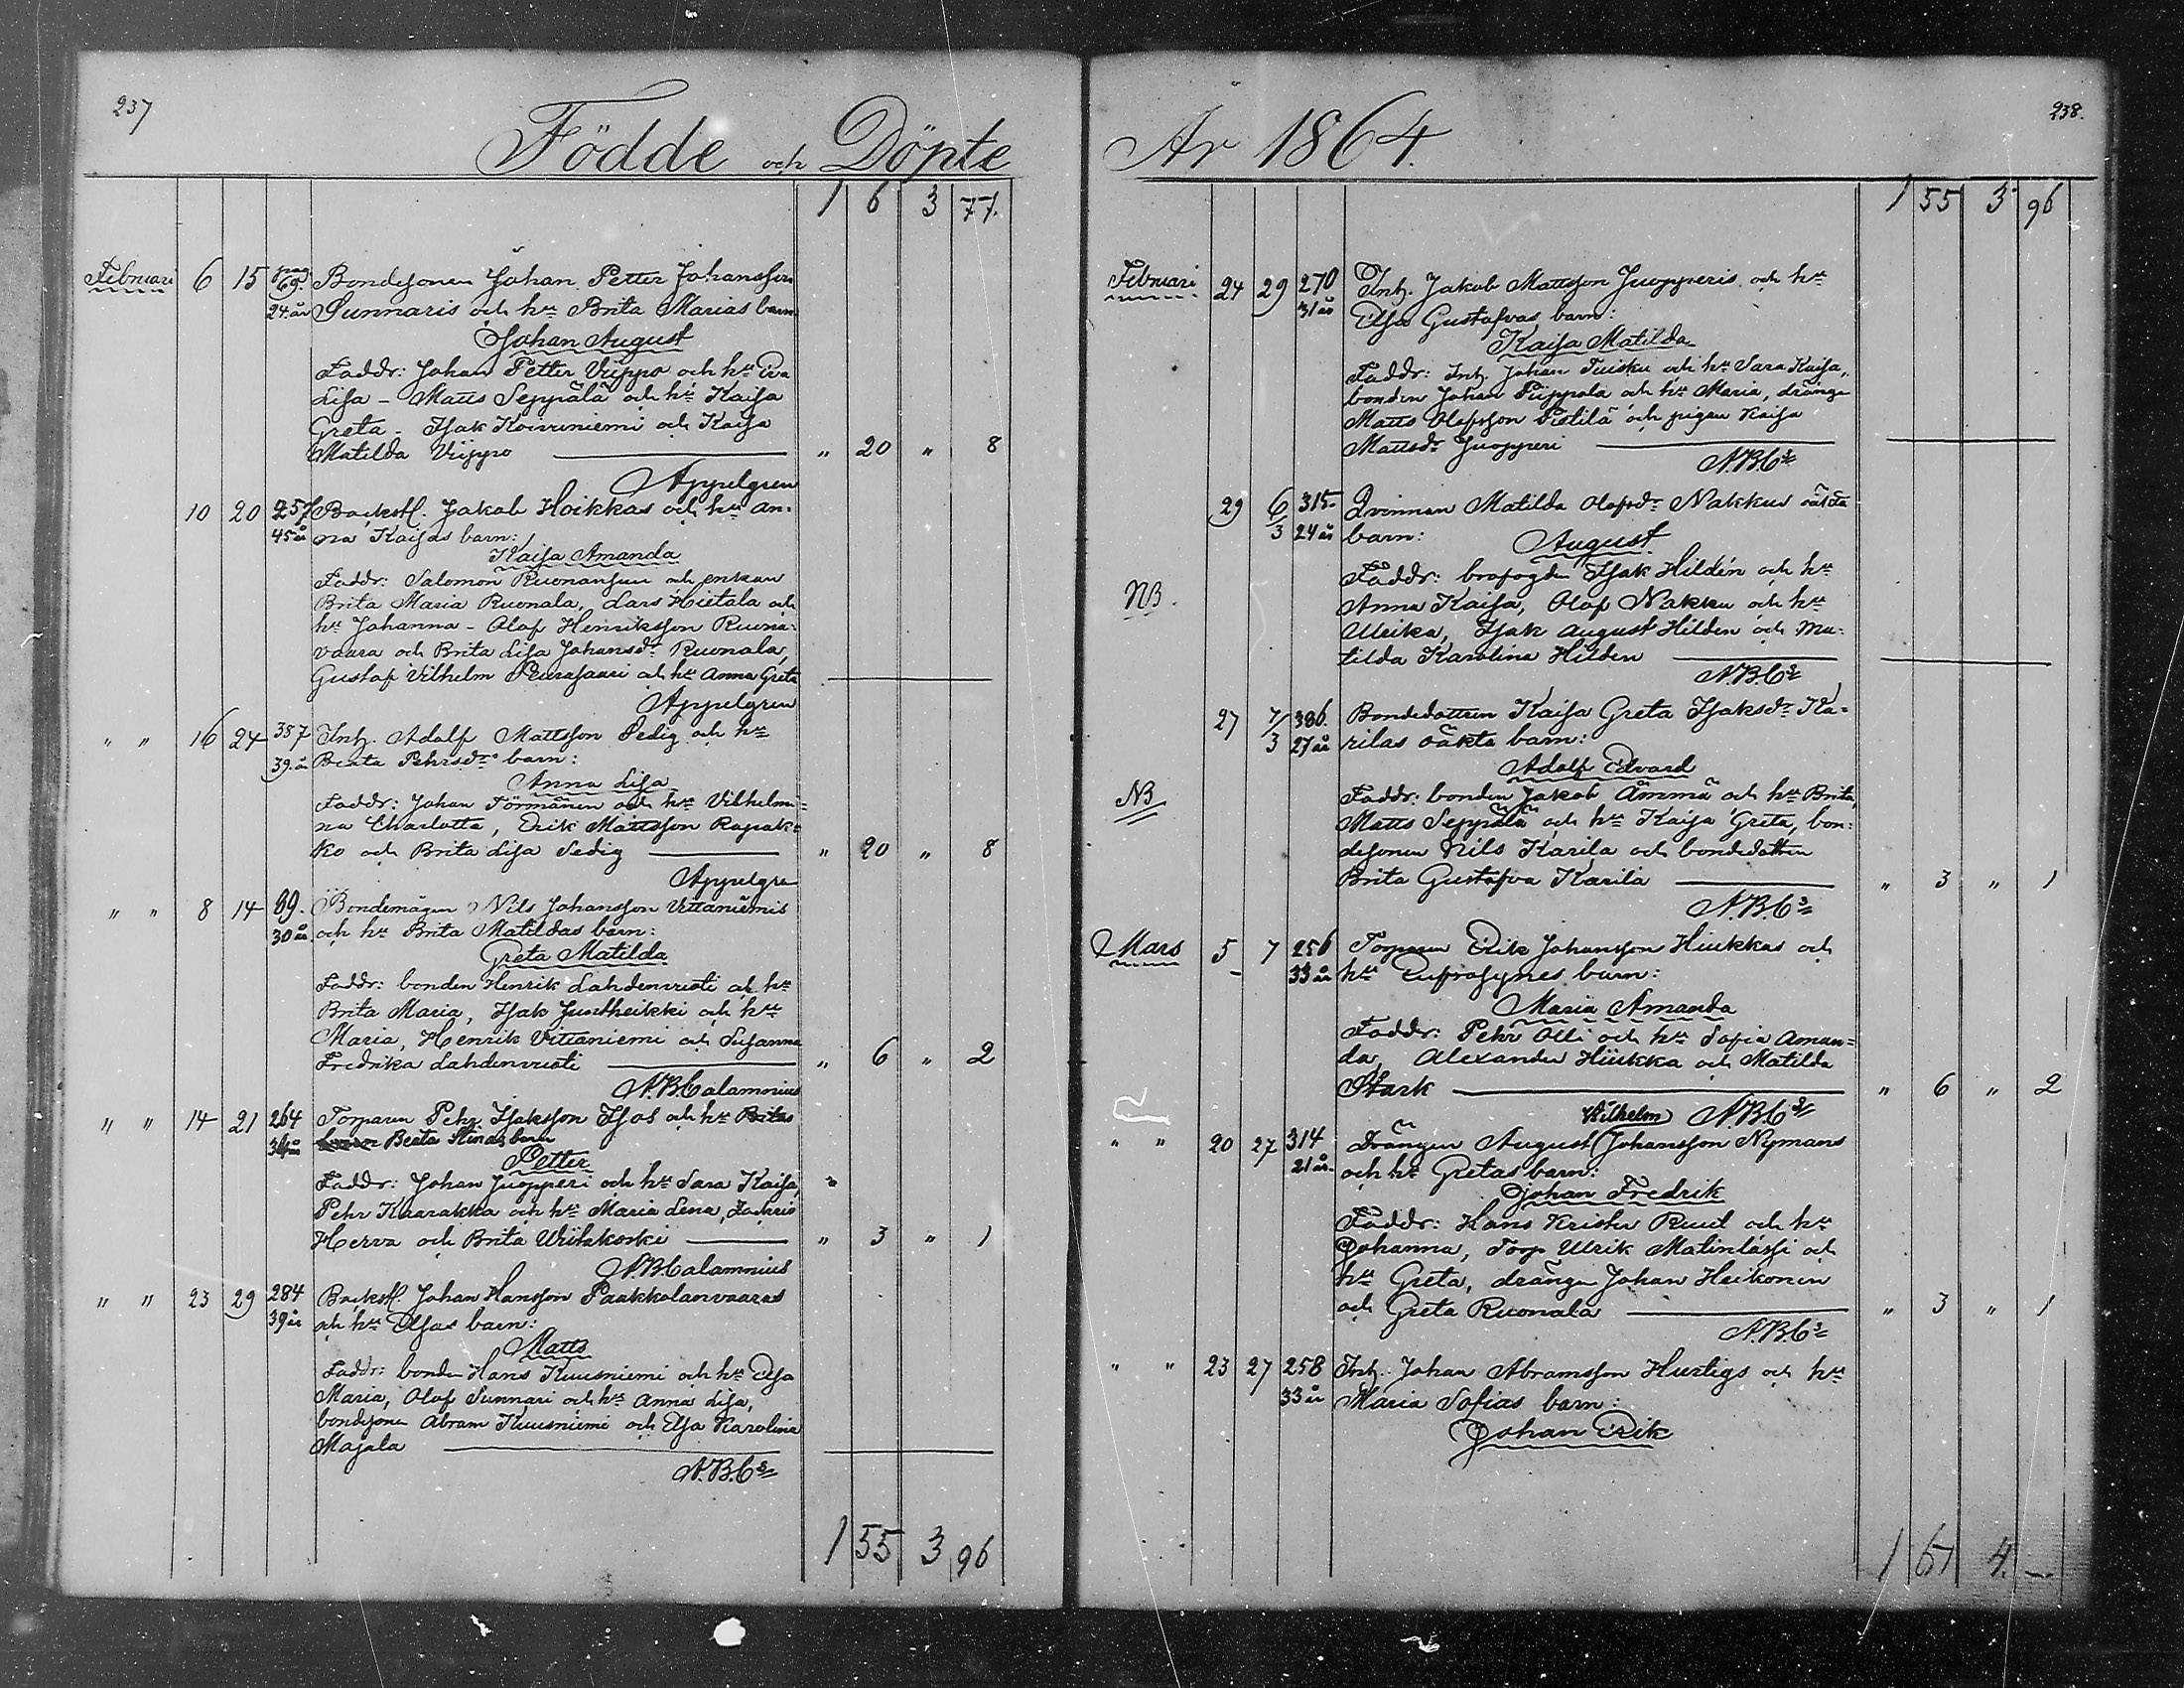 237
Födde och Döpte
1 6 3 77.
Februari 6 15 pag 69. Bondesonen Johan Petter Johansson
24 år Sunnaris och hu Brita Marias barn
Johan August
Faddr: Johan Petter Viippo och hu Eva
Lisa - Matts Seppälä och hu Kaisa
Greta - Isak Koivuniemi och Kaisa
Matilda Viippo " 20 " 8
Appelgren
10 20 257 Backstl. Jakob Hoikkas och hu An-
45 år na Kaisas barn:
Kaisa Amanda
Faddr: Salomon Ruonansuu och enkan
Brita Maria Ruonala, Lars Hietala och
hu Johanna - Olof Henriksson Ruona-
vaara och Brita Lisa Johansdr Ruonala,
Gustaf Vilhelm Peurasaari och hu Anna Greta
Appelgren
" " 16 24 387 Inh. Adolf Mattsson Sedig och hu
39 år Beata Pehrsdrs barn:
Anna Lisa
Faddr: Johan Törmänen och hu Vilhelmi-
na Charlotta, Erik Mattsson Rapak-
ko och Brita Lisa Sedig " 20 " 8
Appelgren
" " 8 14 69. Bondemågen Nils Johansson Vittaniemis
30 år och hu Brita Matildas barn:
Greta Matilda
Faddr: bonden Henrik Lahdenvuoti och hu
Brita Maria, Isak Juntheikki och hu
Maria, Henrik Vittaniemi och Susanna
Fredrika Lahdenvuoti " 6 " 2
N.B.Calamnius
" " 14 21 264 Torparen Pehr Isaksson Isos och hu Britas
36 år barn Beata Stinas barn
Petter
Faddr: Johan Juopperi och hu Sara Kaisa,
Pehr Kaarakka och hu Maria Lena, Zachris
Herva och Brita Viitakoski " 3 " 1
N.B.Calamnius
" " 23 29 284 Backstl. Johan Hansson Paakkolanvaaras
39 år och hu Elsas barn:
Matts
Faddr: bonden Hans Kuusniemi och hu Elsa
Maria, Olof Sunnari och hu Anna Lisa,
bondesonen Abram Kuusniemi och Elsa Karolina
Majala
N.B.Cs
1 55 3 96
238.
År 1864.
1 55 3 96
Februari 24 29 270 Inh. Jakob Mattsson Juopperis och hu
31 år Elsa Gustafvas barn:
Kaisa Matilda
Faddr: Inh. Johan Tuisku och hu Sara Kaisa,
bonden Johan Piippola och hu Maria, drängen
Matts Olofsson Pietilä och pigan Kaisa
Mattsdr Juopperi
N.B.Cs
29 6/3 315. Qvinnan Matilda Olofsdr Nakkus oäkta
24 år barn:
August
NB. Faddr: brofogden Isak Hildén och hu
Anna Kaisa, Olof Nakku och hu
Ulrika, Isak August Hilden och Ma-
tilda Karolina Hilden
N.B.Cs
27 7/3 386. Bondedottren Kaisa Greta Isaksdr Ka-
27 år rilas oäkta barn:
Adolf Edvard
NB Faddr: bonden Jakob Ämmä och hu Brita,
Matts Seppälä och hu Kaisa Greta, bon-
desonen Nils Karila och bondedottren
Brita Gustafva Karila " 3 " 1
N.B.Cs
Mars 5 7 256 Torparen Erik Johansson Hiukkas och
33 år hu Eufrosynes barn:
Maria Amanda
Faddr: Pehr Olli och hu Sofia Aman-
da, Alexander Hiukka och Matilda
Stark " 6 " 2
Vilhelm N.B.Cs
" " 20 27 314 Drängen August Johansson Nymans
21 år. och hu Gretas barn:
Johan Fredrik
Faddr: Hans Krister Ruut och hu
Johanna, Torp Ulrik Matinlassi och
hu Greta, drängen Johan Heikonen
och Greta Ruonala " 3 " 1
N.B.Cs
" " 23 27 258 Inh. Johan Abramsson Hurtigs och hu
33 år Maria Sofias barn:
Johan Erik
1 67 4. —.